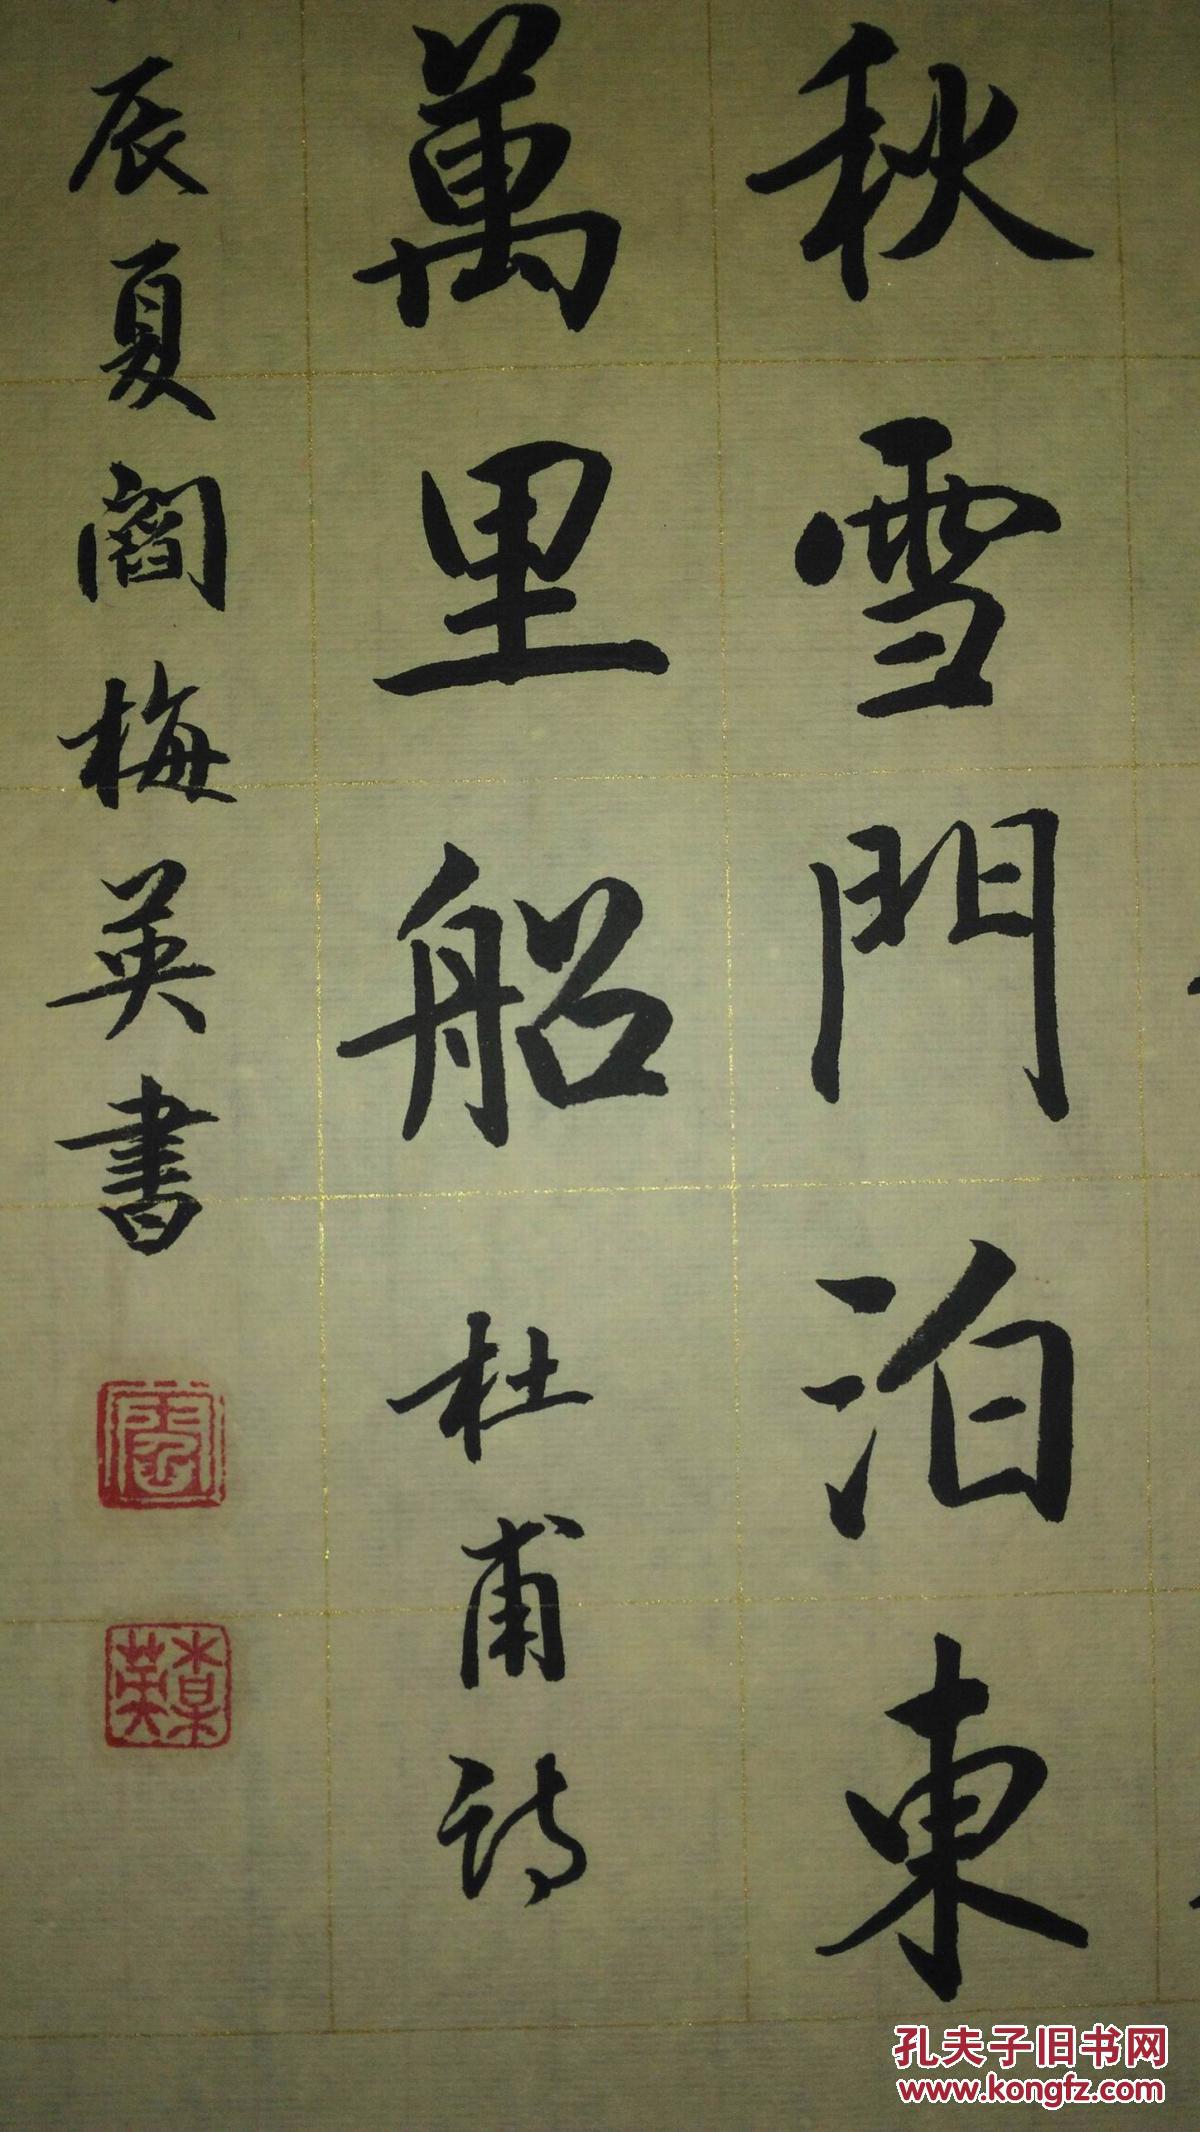 秋雪門泊東
萬里船 杜甫詩
辰夏閻梅英書
孔夫子旧书网
www.kongfz.com